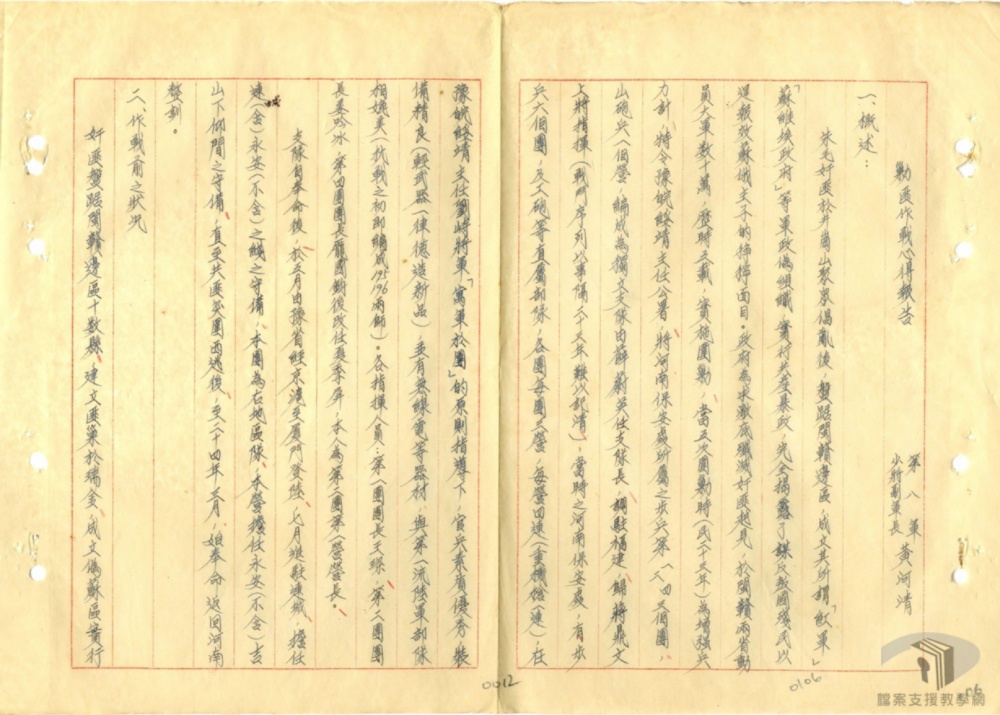 剿匪作戰心得報告
第八軍
少將副軍長 黃河清
一、概述：
朱毛奸匪於井崗山聚眾倡亂後，盤踞閩贛邊區，成立其所謂「紅軍」
「蘇維埃政府」等軍政偽組織，實行共產暴政，完全揭露了謀反叛國殘民以
逞報效蘇俄主子的猙獰面目。政府為求澈底殲滅奸匪起見，於閩贛兩省動
員大軍數十萬，歷時五載，實施圍剿，當五次圍剿時（民二十三年）為增強兵
力計，特令豫皖綏靖主任公署，將河南保安處所屬之步兵第一、三、四三個團，
山砲兵一個營，編成為獨立支隊由薛蔚英任支隊長，調駐福建，歸蔣鼎文
上將指揮（戰鬥序列以事隔二十三年難以記清）當時之河南保安處，有步
兵六個團，及工砲等直屬部隊，各團每團三營，每營四連（重機槍一連），在
豫皖綏靖主任劉峙將軍「寓軍於團」的原則指導下，官兵素質優秀，裝
備精良（輕武器一律德造新品），並有無線電等器材，與第一流陸軍部隊
相媲美（抗戰之初即編成195 196兩師）。各指揮員：第一團團長王琛，第二團團
長姜玲冰，第四團團長龐國鈞後改任莫季屏，本人為第二團第一營營長。
支隊自奉命後，於五月由豫省經京滬至厦門登陸，七月推駐連城，擔任
連（含）永安（不含）之綫之守備，本團為右地區隊，本營擔任永安（不含）吉
山下柳間之守備，直至共匪突圍西逃後，至二十四年三月，始奉命返回河南
整訓。
二、作戰前之狀況
奸匪盤踞閩贛邊區十數縣，建立匪巢於瑞金，成立偽蘇區實行
0012
0106
06
檔案支援教學網